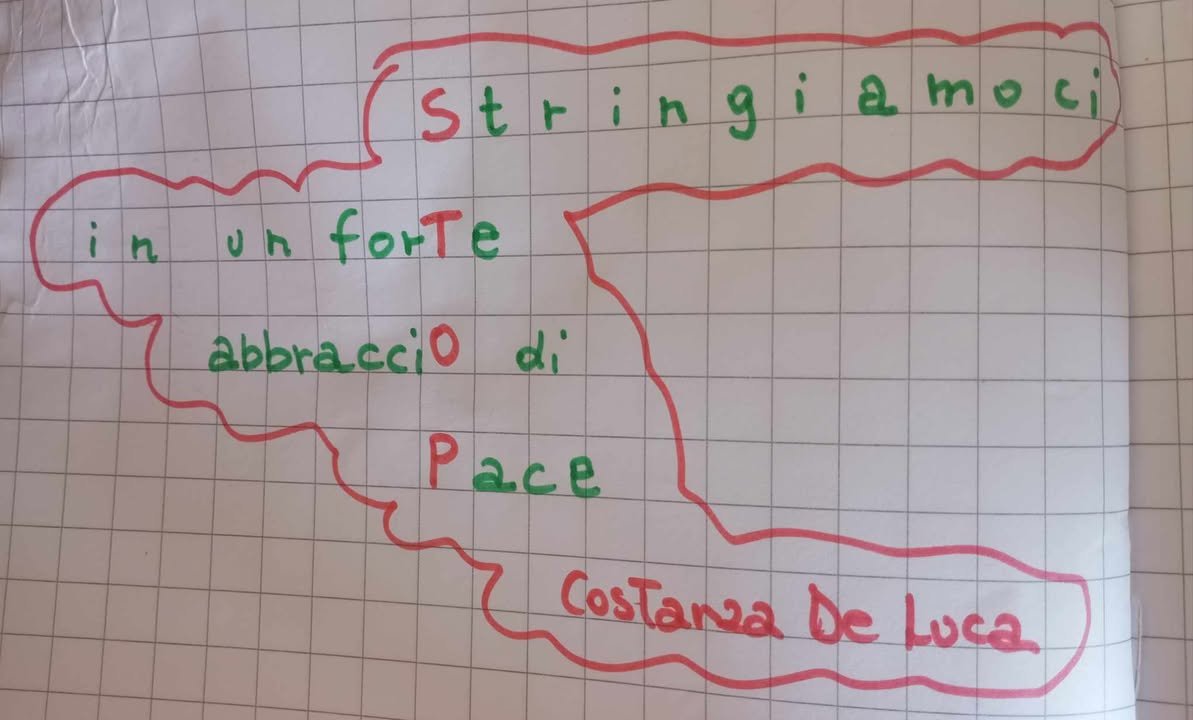 Stringiamoci
in un forTe
abbracciO di
Pace
CosTanza De Luca